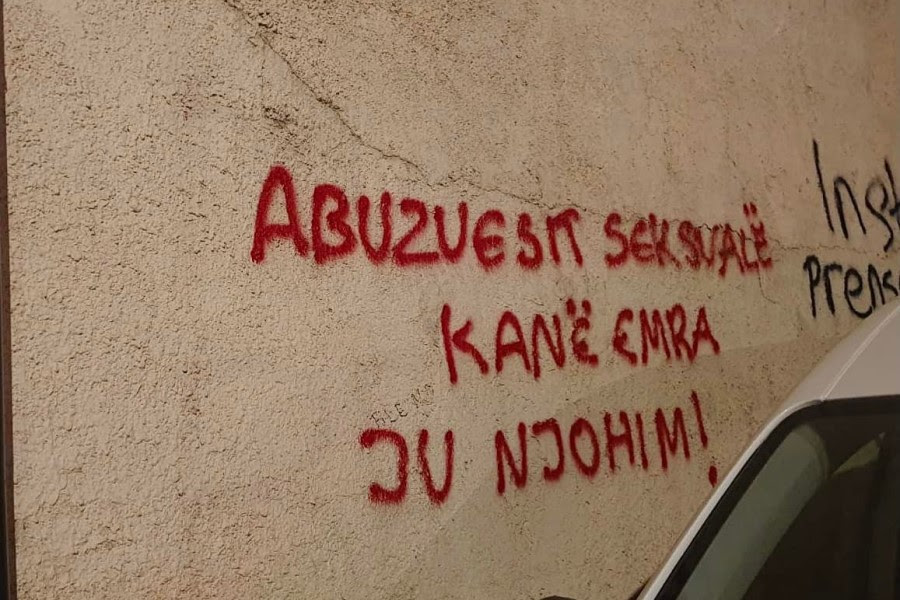 ABUZUESIT SEKSUALË
KANË EMRA
JU NJOHIM!